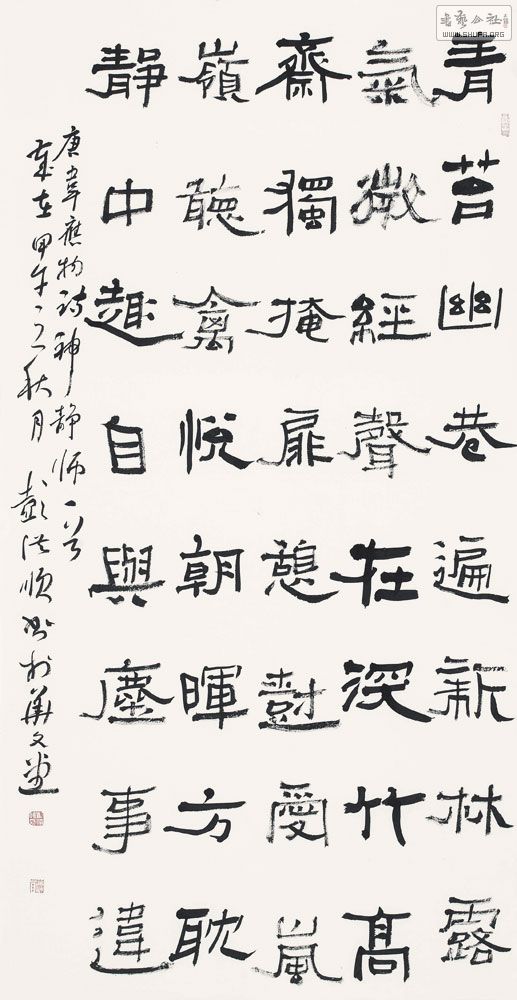 書藝公社
WWW.SHUFA.ORG
青苔幽巷遍新林露
氣微經聲在深竹高
齋獨掩扉憩樹愛嵐
嶺聽禽悅朝暉方耽
靜中趣自與塵事違
唐韋應物詩神靜師一首
歲在甲午之秋月彭洪順書於華文堂